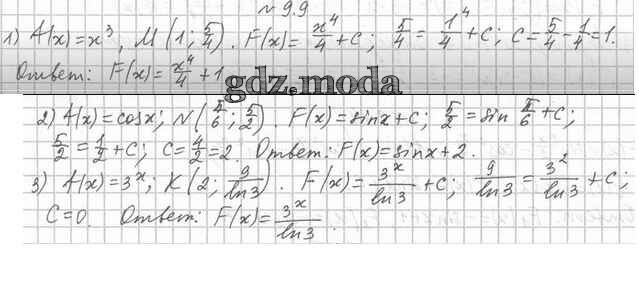 № 9.9
1) A(x)=x³, M(1; 5/4). F(x)= x⁴/4 + C; 5/4 = 1⁴/4 + C; C= 5/4 - 1/4 =1.
Ответ: F(x)= x⁴/4 + 1
gdz.moda
2) A(x)=cosx; N(π/6; 5/2) F(x)=sinx+C; 5/2 = sin π/6 + C;
5/2 = 1/2 + C; C= 4/2 =2. Ответ: F(x)=sinx+2.
3) A(x)=3ˣ; K(2; 9/ln3). F(x)= 3ˣ/ln3 + C; 9/ln3 = 3²/ln3 + C;
C=0. Ответ: F(x)= 3ˣ/ln3.